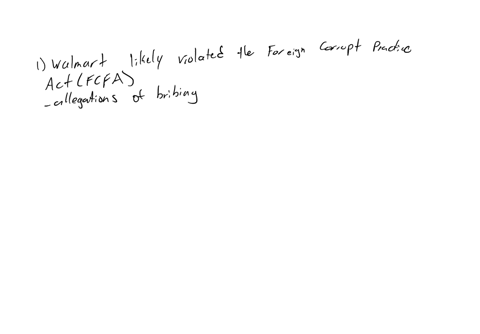 1) Walmart likely violated the Foreign Corrupt Practice
Act (FCFA)
- allegations of bribing